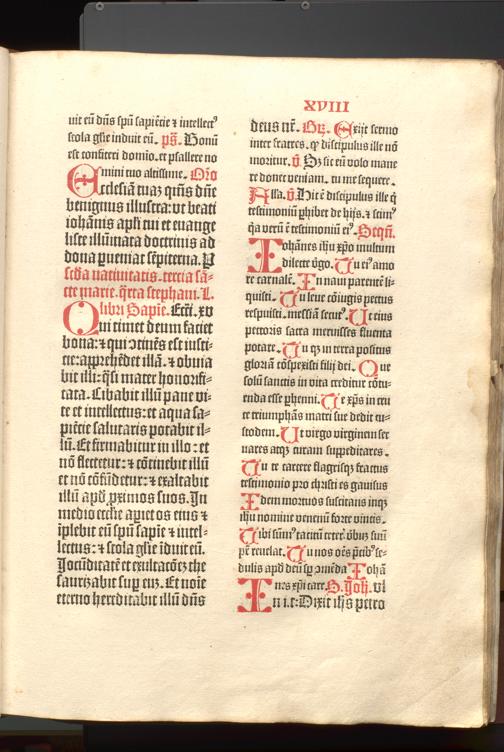 XVIII
uit eū dn̄s spū sapiētie ⁊ intellectꝰ
stola glīe induit eū. ps̄. Bonū
est confiteri domīo. et psallere no
mini tuo altissime. Oro
Ecclesiā tuaz qn̄s dn̄e
benignus illustra: vt beati
iohānis apl̄i tui et euange
liste illumīata doctrinis ad
dona ꝑueniat sēpiterna. P
scd̄a natiuitatis. tercia sā-
cte marie. q̄rta stephani. L.
libri Sapīe. Ecc̄i. xv
Qui timet deum faciet
bona: ⁊ qui ↄtinēs est iusti-
cie: apprehēdet illā. ⁊ obuia
bit illi: q̄si mater honorifi-
tata. Cibabit illū pane vi-
te et intellectus: et aqua sa-
piētie salutaris potabit il-
lū. Et firmabitur in illo: et
nō flectetur: ⁊ cōtinebit illū
et nō cōfūdetur: ⁊ exaltabit
illū apd̄ ꝓximos suos. In
medio ecclīe aperiet os eius ⁊
īplebit eū spū sapīe ⁊ intel-
lectus: ⁊ stola glīe īduit eū.
Jocūditatē et exultacōeȝ the
saurizabit sup euȝ. Et noīe
eterno hereditabit illū dn̄s
deus nr̄. Gr̄. Exijt sermo
inter fratres. ꝙ discipulus ille nō
moritur. v̄. Sȝ sic eū volo mane
re donec veniam. tu me sequere.
Alla. v̄. Hic ē discipulus ille q̄
testimoniū ꝑhibet de hijs. ⁊ scimꝰ
q̄a verū ē testimoniū eiꝰ. Sequē.
Iohānes ihū xp̄o multum
dilecte v̓go. Tu eiꝰ amo
re carnalē. In naui parentē li-
quisti. Tu leue cōiugis pectus
respuisti. messiā secutꝰ. Ut eius
pectoris sacra merusses fluenta
potare. Tu qȝ in terra positus
gloriā cōspexisti filij dei. Que
solū sanctis in vita creditur cōtu-
enda esse ꝑhenni. Te xp̄s in cru
ce triumphās matri sue dedit cu-
stodem. Ut virgo virginem ser
uares atqȝ curam suppeditares.
Tu te carcere flagrisqȝ fractus
testimonio pro christi es gauisus
Idem mortuos suscitans inqȝ
ihū nomine venenū forte vincis.
Tibi sūmꝰ tacitū ceter̓ ꝟbuȝ suū
pr̄ reuelat. Tu nos oēs p̄cibꝰ se-
dulis apd̄ deū sp̄ ↄmēda Iohā
nes xp̄i care. S. Joh̄. vl
In i.t: Dixit ihs̄ petro